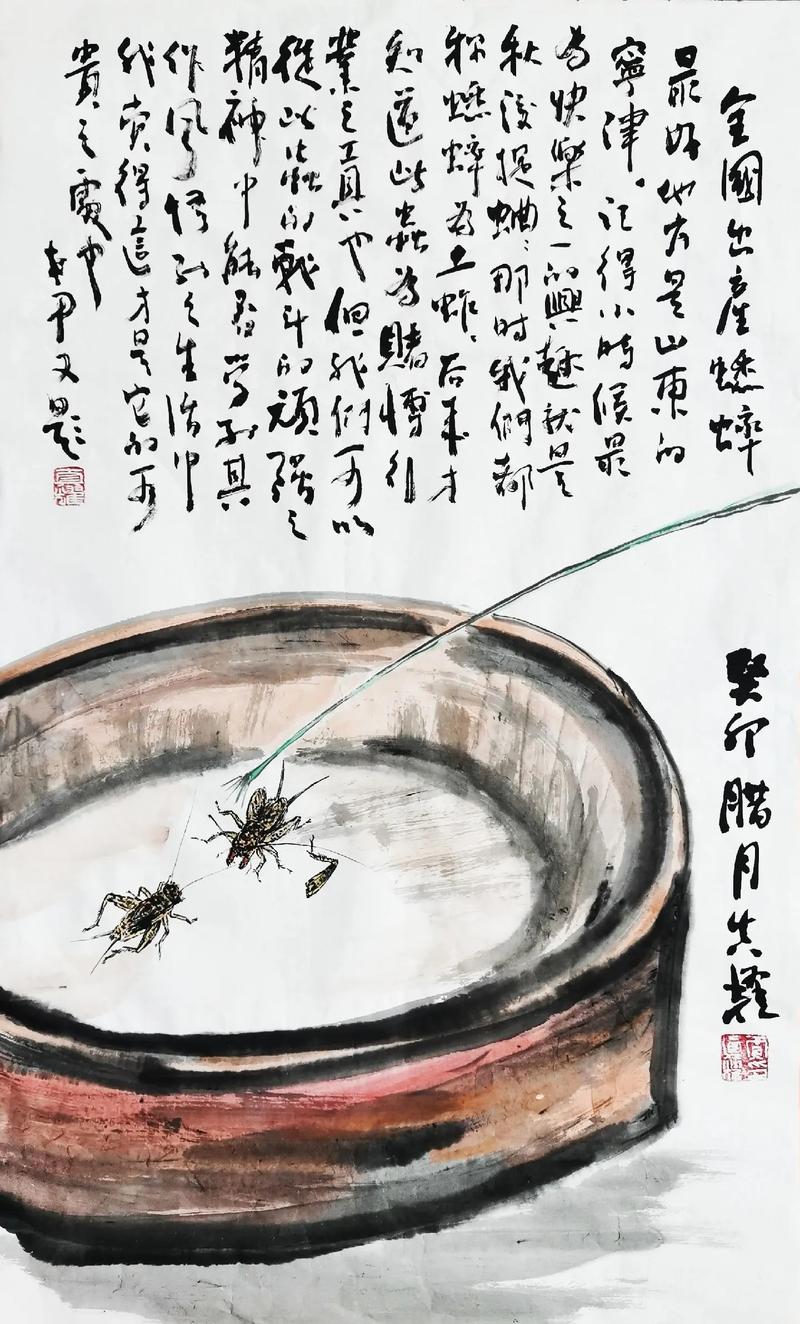 全國出產蟋蟀
最好地方是山東的
寧津。記得小時候最
為快樂之一的興趣就是
秋後捉蛐蛐那時我們都
稱蟋蟀為土蚱后來才
知道此蟲為賭博行
業之工具也但我們可以
從此蟲的戰斗的頑強之
精神中能學到其
作風悟到之生活中
我覺得這才是它的可
貴之處也
甲又題
癸卯臘月